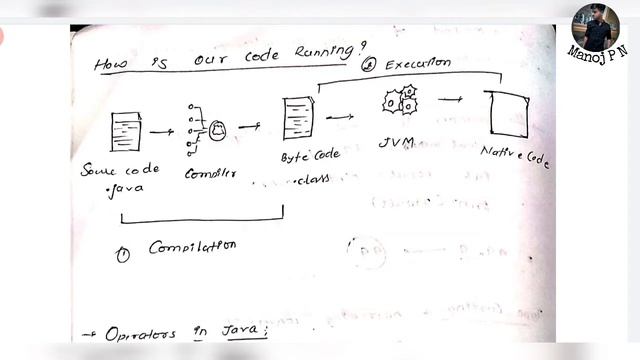 How is our code Running?
② Execution
Source code
.java
Compiler
Byte code
.class
JVM
Native Code
① Compilation
→ Operators in Java:
Manoj P N